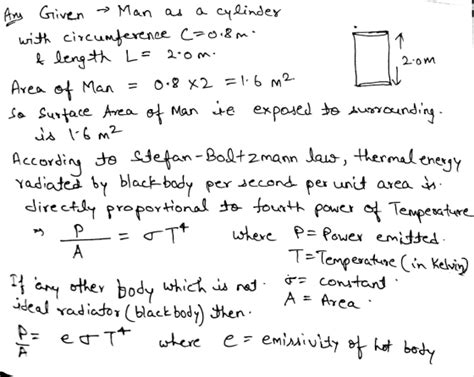 Ans Given → Man as a cylinder
with circumference C=0.8m.
& length L = 2.0m.
2.0m
Area of Man = 0.8 X2 = 1.6 m²
So Surface Area of Man ie exposed to surrounding.
is 1.6 m²
According to Stefan-Boltzmann law, thermal energy
radiated by blackbody per second per unit area is
directly proportional to fourth power of Temperature
⇒ P/A = σT⁴ where P = Power emitted.
T = Temperature (in Kelvin)
If any other body which is not σ = constant.
ideal radiator (blackbody) then. A = Area.
P/A = e σ T⁴ where e = emissivity of hot body